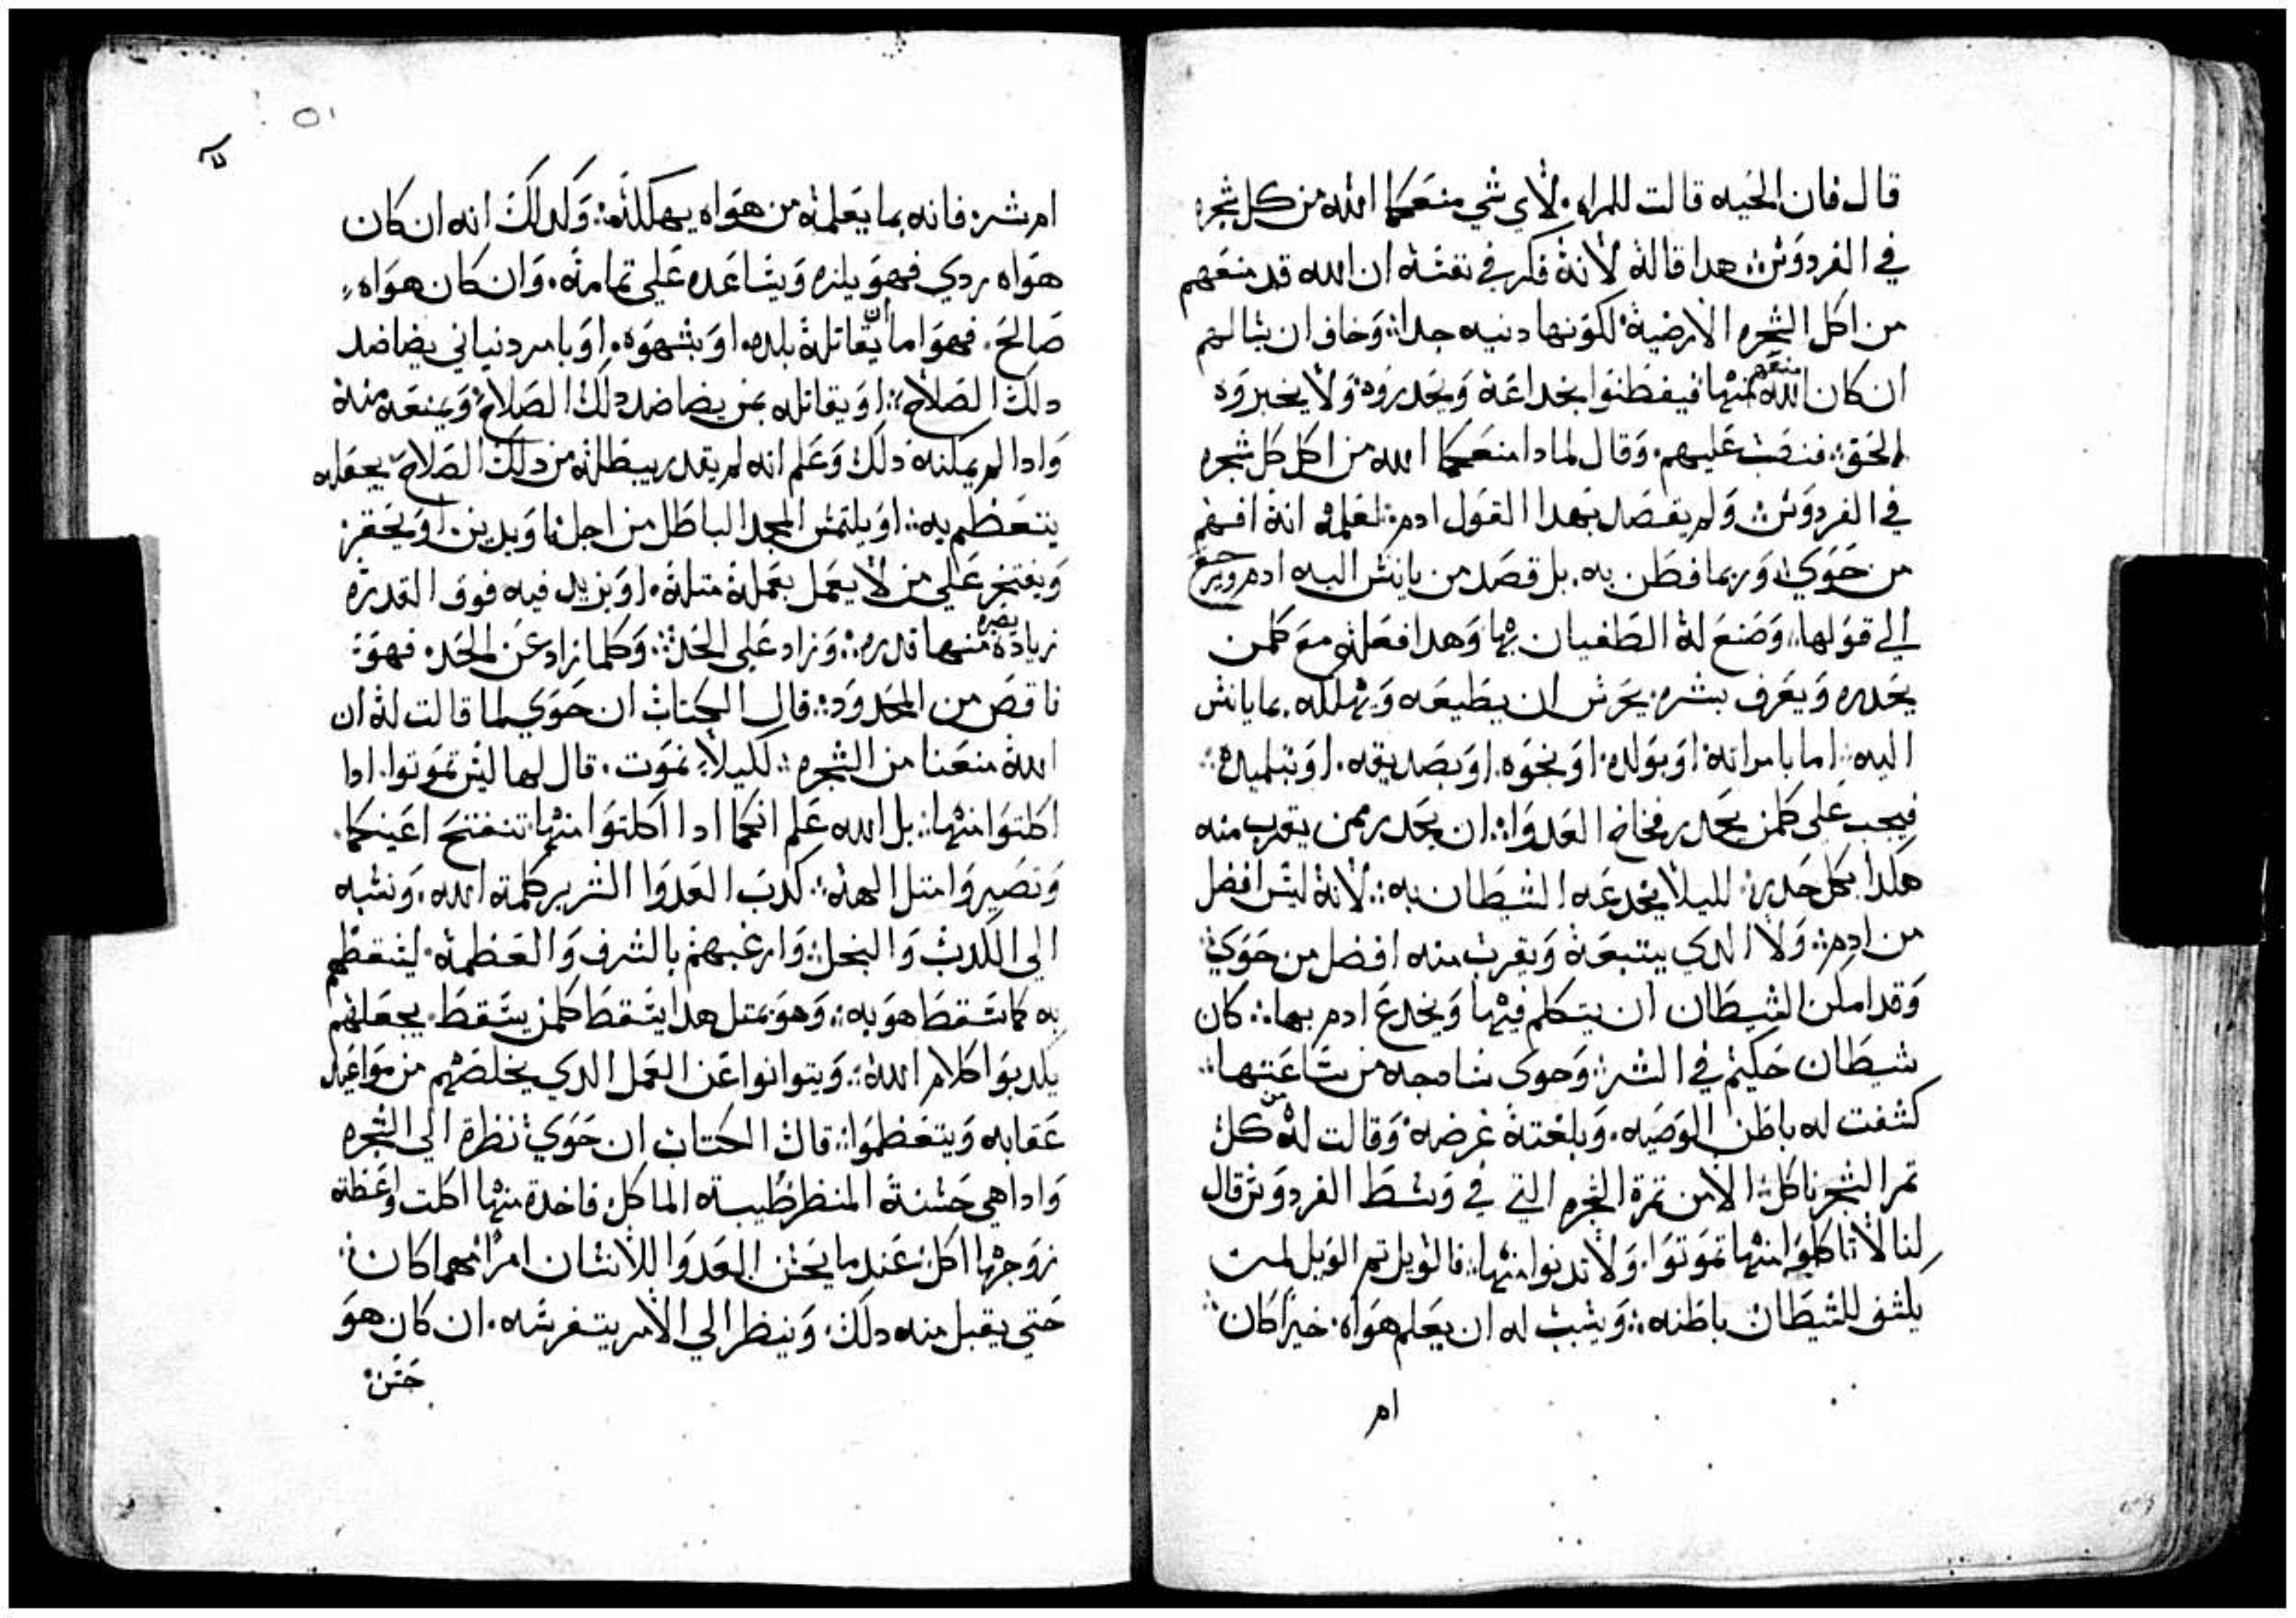 قال فان الحيه قالت للمراه. لاي شي منعكما الله من كل شجره
في الفردوس: هدا قاله لانه فكر في نفسه ان الله قد منعهم
من اكل الشجره الارضية لكونها دنيه جدا: وخاف ان يسالهم
ان كان الله منعهم منها فيفطنوا بخداعه ويحدروه ولا يخبروه
الحق: فنصب عليهم. وقال لمادا منعكما الله من اكل كل شجره
في الفردوس: ولم يقصد بهدا القول ادم: لعلمه انه افهم
من حوي: وربما فطن به. بل قصد من يانس اليه ادم ويرجع
الي قولها: وصنع له الطغيان بها وهدا فعله مع كلمن
يحدره ويعرف بشره. يحرس ان يطيعه ويهلكه. بما يانس
اليه: اما بامراته او بولده. او بخوه. او بصديقه. او بتلميده:
فيجب علي كلمن يحدر فخاخ العدوا: ان يحدر ممن يقرب منه
هكدا بكل حدر: لليلا يخدعه الشيطان به: لانه ليس افضل
من ادم: ولا الدي يتبعه ويقرب منه افضل من حوي:
وقد امكن الشيطان ان يتكلم فيها ويخدع ادم بها: كان
شيطان حكيم في الشر: وحوي سامجه من ساعتها:
كشفت له باطن الوصيه. وبلغته غرضه وقالت له من كل
تمر الشجر ناكل: الا من تمرة الشجره التي في وسط الفردوس قال
لنا لا تاكلوا منها تموتوا. ولا تدنوا منها: فالويل تم الويل لمن
يكشف للشيطان باطنه: ويثبت له ان يعلم هواه. خيرا كان:
ام
٥١
ام شر: فانه بما يعلمه من هواه يهلكه: وكدلك انه ان كان
هواه ردي فهو يلزه ويساعده علي تمامه. وان كان هواه
صالح. فهو اما ان يقاتله بلده. او بشهوه. او بامر دنياني يضاضد
دلك الصلاح: او يقاتله بمن يضاضد دلك الصلاح: ويمنعه منه
وادا لم يمكنه دلك وعلم انه لم يقدر يبطله من دلك الصلاح يجعله
يتعظم به: او يلتمس المجد الباطل من اجله او يدين. او يحقر
ويفتخر علي من لا يعمل بعمله متله. او يزيد فيه فوق القدره
زيادة منها قدره: وزاد علي الحد: وكلما زاد عن الحد. فهو
ناقص من المحدود: قال الكتاب ان حوي لما قالت له ان
الله منعنا من الشجره: لكيلا نموت. قال لها ليس تموتوا. ادا
اكلتوا منها: بل الله علم انكما ادا اكلتوا منها تنفتح اعينكما.
وتصيروا متل الهه: كدب العدوا الشرير كلمة الله. ونسبه
الي الكدب والبخل: وارغبهم بالشرف والعظمة. ليسقطهم
به كما سقط هو به: وهو بمتل هدا يسقط كلمن يسقط. يجعلهم
يكدبوا كلام الله: ويتوانوا عن العمل الدي يخلصهم من مواعيد
عقابه ويتعظموا: قال الكتاب ان حوي نظرة الي الشجره
وادا هي حسنة المنظر طيبة الماكل فاخدة منها اكلت واعطة
زوجها اكل: عند ما يحسن العدوا للانسان امرا مهما كان:
حتي يقبل منه دلك. وينظر الي الامر يتفرسه. ان كان هو
حسن